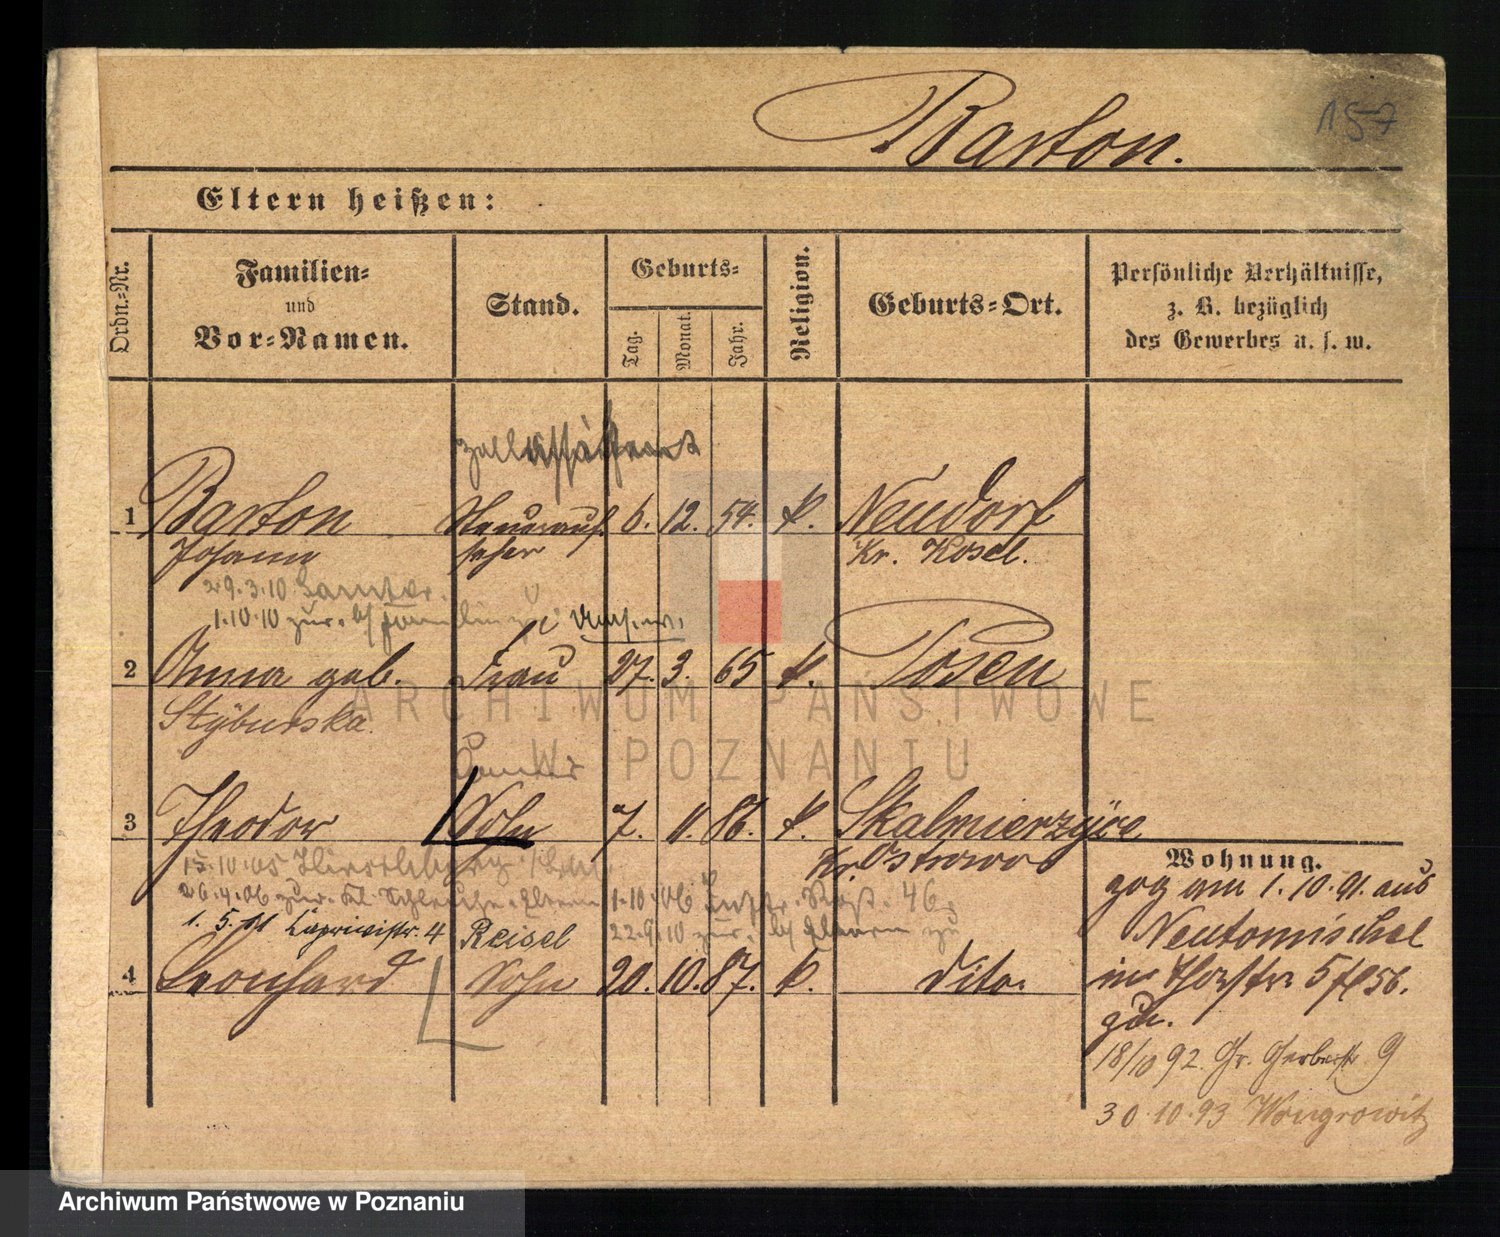 157
Barton.
Eltern heißen:
Ordn.-Nr.
Familien-
und
Vor-Namen.
Stand.
Geburts-
Tag.
Monat.
Jahr.
Religion.
Geburts-Ort.
Persönliche Verhältnisse,
z. B. bezüglich
des Gewerbes u. s. w.
1 Barton Steuerauf- 6. 12. 54. k. Neudorf
Johann seher Kr. Kosel.
29.3.10
1.10.10 zur.
2 Anna geb. Frau 27. 3. 65 k. Posen
Styburska.
3 Theodor Sohn 7. 11. 86. k. Skalmierzyce
Kr. Ostrowo
15.10.05
26.4.06 zur. Eltern 1.10.06 46
1.5.11 Caprivistr. 4 Reisel 22.9.10 zur. Eltern
4 Leonhard Sohn 20. 10. 87. k. dito.
Wohnung.
zog am 1.10.91. aus
Neutomischel
5
zu.
18/10 92 Gr. Gerberstr 9
30.10.93 Wongrowitz
ARCHIWUM PAŃSTWOWE
W POZNANIU
Archiwum Państwowe w Poznaniu